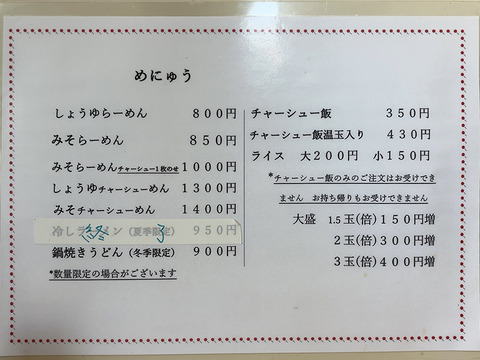 めにゅう
しょうゆらーめん 800円
みそらーめん 850円
みそらーめんチャーシュー1枚のせ 1000円
しょうゆチャーシューめん 1300円
みそチャーシューめん 1400円
冷しラーメン（夏季限定） 950円
終了
鍋焼きうどん（冬季限定） 900円
*数量限定の場合がございます
チャーシュー飯 350円
チャーシュー飯温玉入り 430円
ライス 大200円 小150円
*チャーシュー飯のみのご注文はお受けでき
ません お持ち帰りもお受けできません
大盛 1.5玉(倍)150円増
2玉(倍)300円増
3玉(倍)400円増